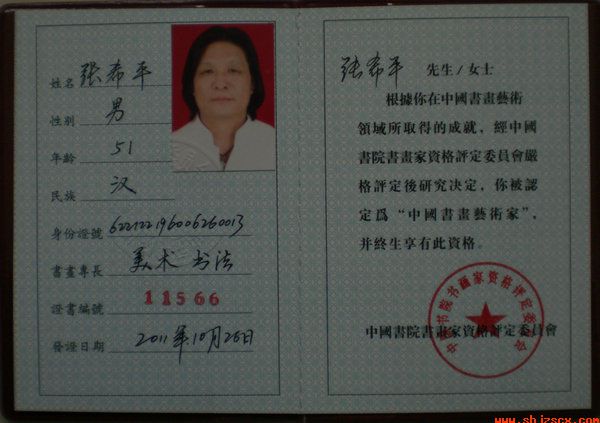 姓名 张希平
性别 男
年龄 51
民族 汉
身份證號 622122196006260013
書畫專長 美术 书法
證書編號 11566
發證日期 2011年10月26日
张希平 先生/女士
根據你在中國書畫藝術
領域所取得的成就，經中國
書院書畫家資格評定委員會嚴
格評定後研究決定，你被認
定爲“中國書畫藝術家”，
并終生享有此資格。
中國書院書畫家資格評定委員會
中國书院书画家资格评定委员会
www.shjzscx.com